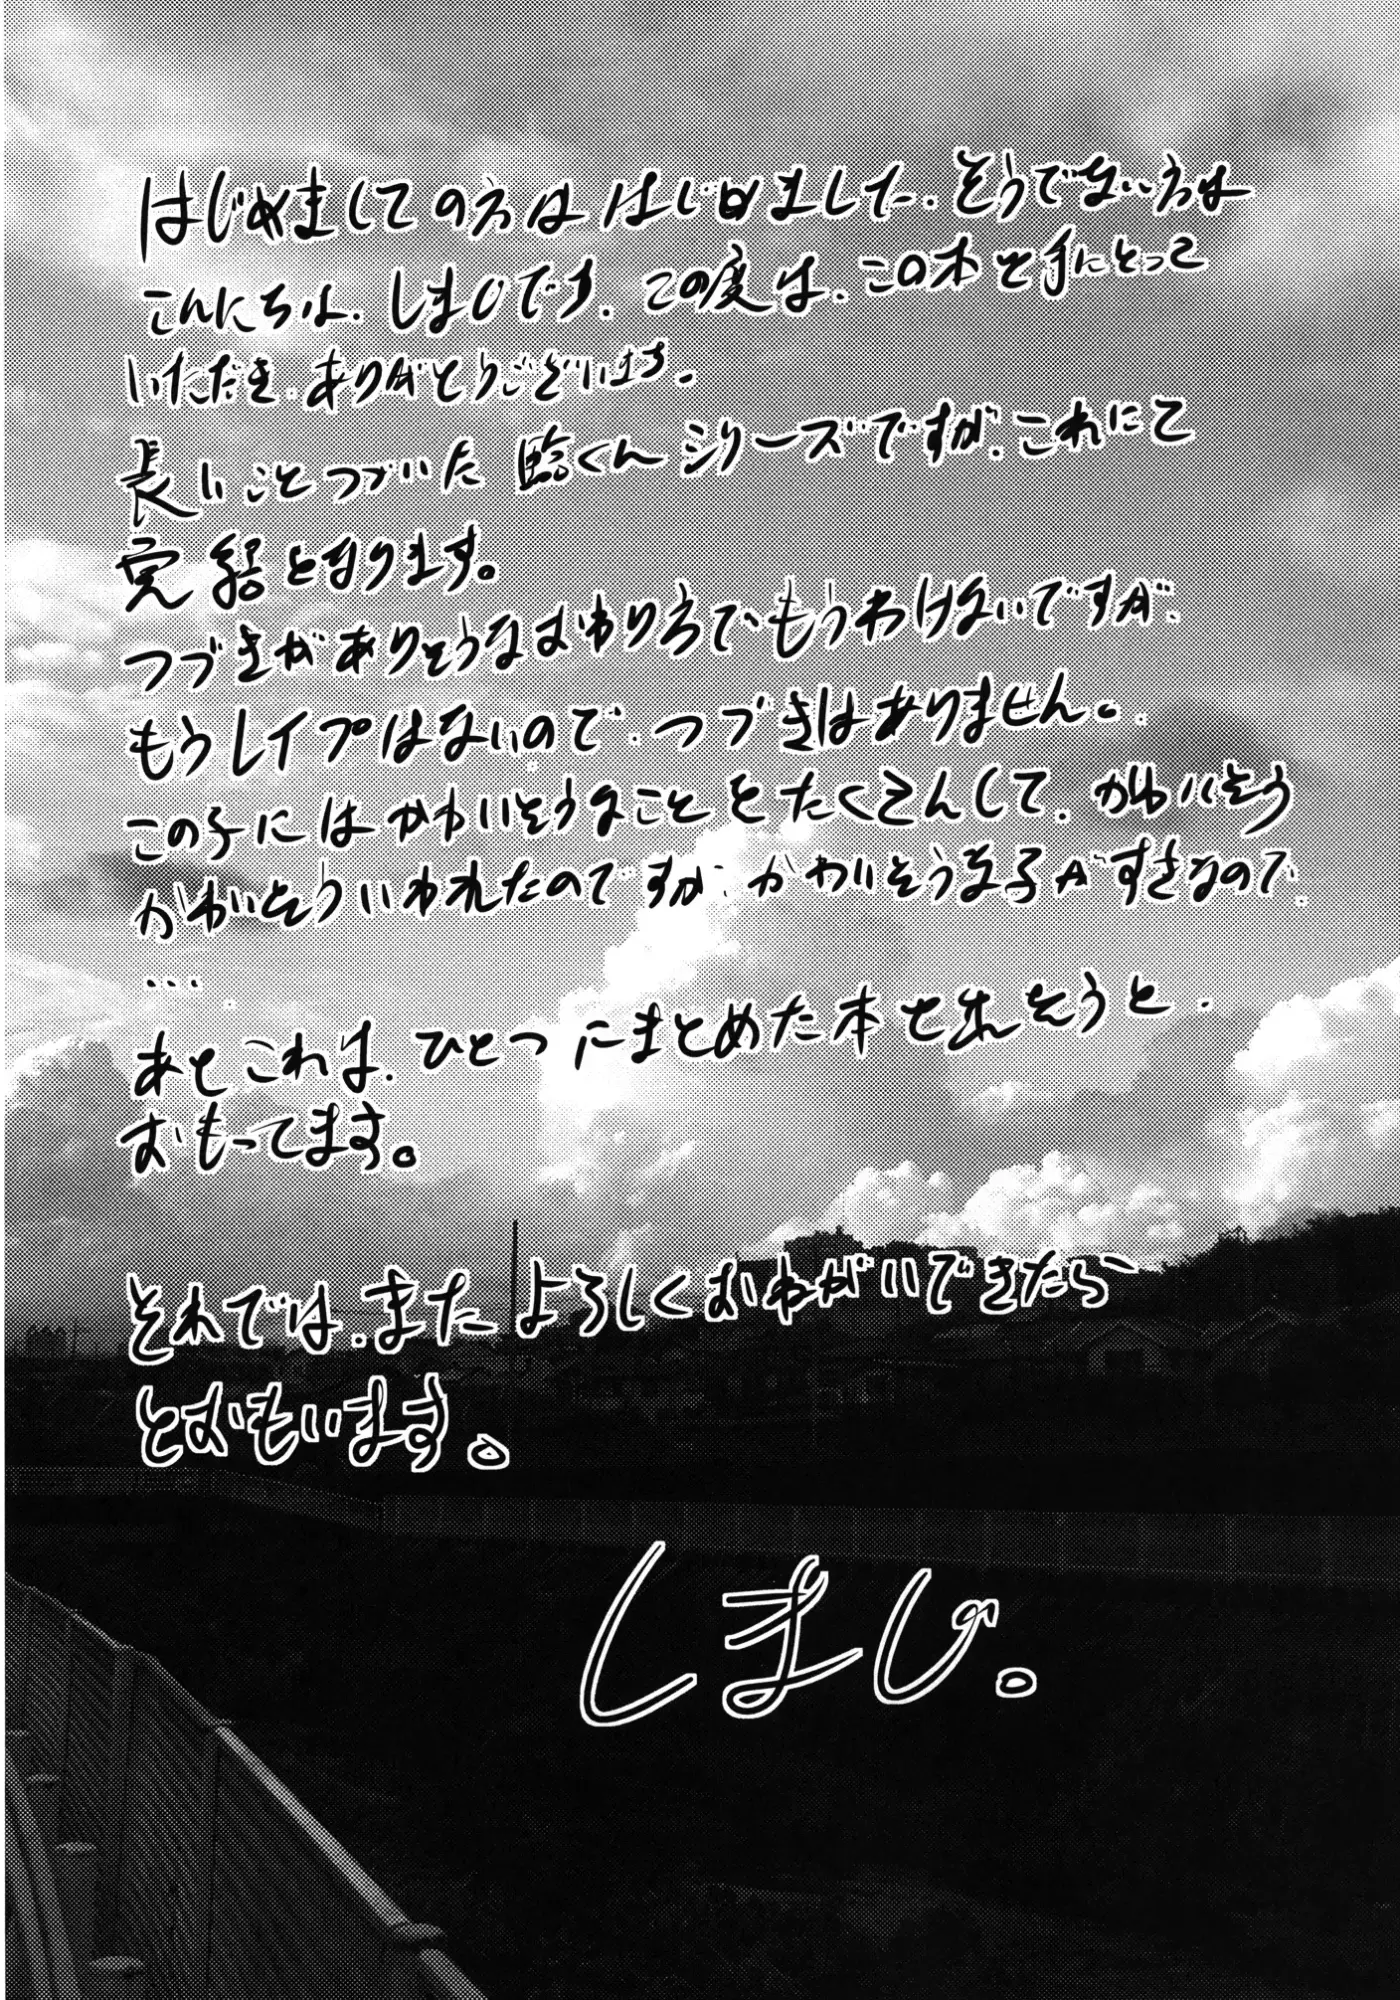 はじめましての方は はじめました. そうでない方は
こんにちは. しまじです. この度は. この本を手にとって
いただき. ありがとうございます.
長いことつづいた 臨くんシリーズですが. これにて
完結となります。
つづきがありそうなおわり方でもうわけないですが.
もうレイプはないので. つづきはありません。.
この子にはかわいそうなことをたくさんして. かわいそう
かわいそういわれたのですが. かわいそうな子がすきなので.
...
あとこれは. ひとつにまとめた本を出そうと.
おもってます。
それでは. また よろしくおねがいできたら
とおもいます。
しまじ。